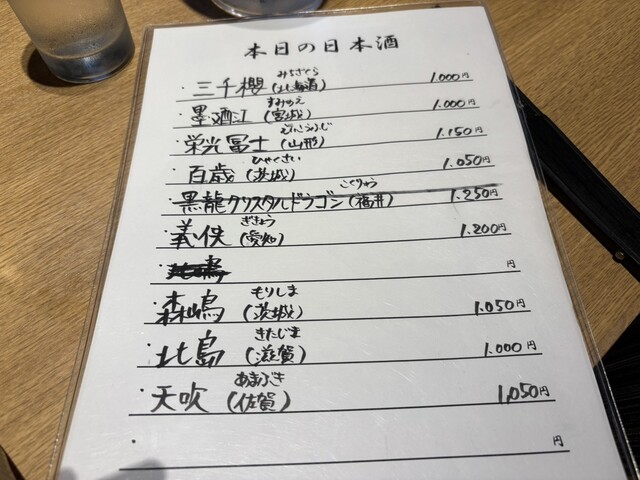 本日の日本酒
・三千櫻(北海道) みちざくら 1.000円
・墨廼江(宮城) すみのえ 1.000円
・栄光冨士(山形) えいこうふじ 1.150円
・百歳(茨城) ひゃくさい 1.050円
・黒龍クリスタルドラゴン(福井) こくりゅう 1.250円
・義侠(愛知) ぎきょう 1.200円
円
・森嶋(茨城) もりしま 1.050円
・北島(滋賀) きたじま 1.000円
・天吹(佐賀) あまぶき 1,050円
・ 円